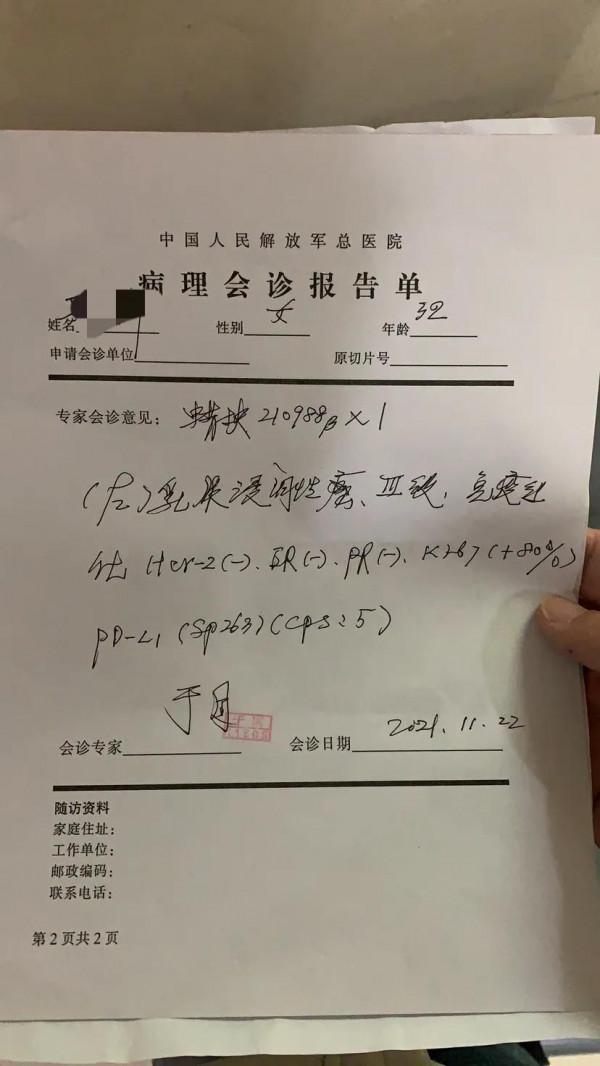 中国人民解放军总医院
病理会诊报告单
姓名 性别 女 年龄 32
申请会诊单位 原切片号
专家会诊意见: 210988β×1
(左)乳腺浸润性癌、Ⅲ级,免疫组
化 Her-2(-)、ER(-)、PR(-)、Ki67(+80%)
PD-L1(SP263)(CPS:5)
会诊专家 会诊日期 2021.11.22
随访资料
家庭住址:
工作单位:
邮政编码:
联系电话:
第2页共2页